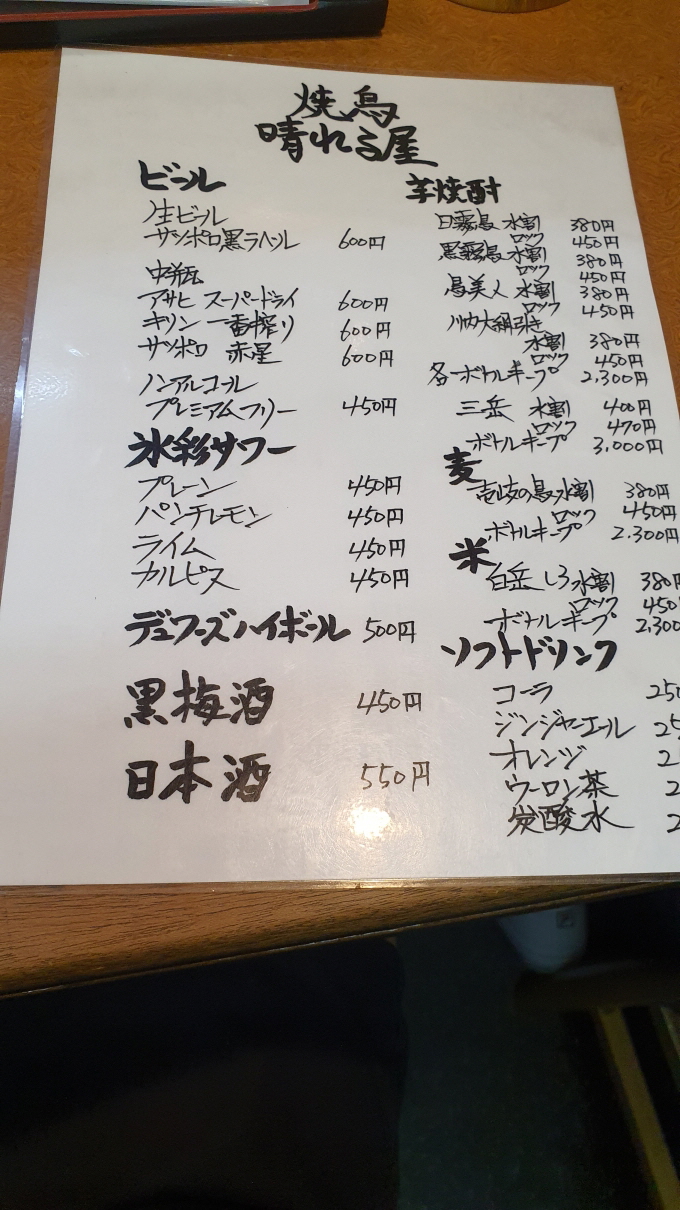 焼鳥
晴れる屋
ビール
生ビール
サッポロ黒ラベル 600円
中瓶
アサヒ スーパードライ 600円
キリン 一番搾り 600円
サッポロ 赤星 600円
ノンアルコール
プレミアムフリー 450円
氷彩サワー
プレーン 450円
パンチレモン 450円
ライム 450円
カルピス 450円
デュワーズハイボール 500円
黒梅酒 450円
日本酒 550円
芋焼酎
白霧島 水割 380円
ロック 450円
黒霧島 水割 380円
ロック 450円
島美人 水割 380円
ロック 450円
川内大綱引き
水割 380円
ロック 450円
各ボトルキープ 2,300円
三岳 水割 400円
ロック 470円
ボトルキープ 3,000円
麦
壱岐の島 水割 380円
ロック 450円
ボトルキープ 2.300円
米
白岳しろ 水割 380円
ロック 450
ボトルキープ 2,300
ソフトドリンク
コーラ 250
ジンジャーエール 25
オレンジ 2
ウーロン茶 2
炭酸水 2